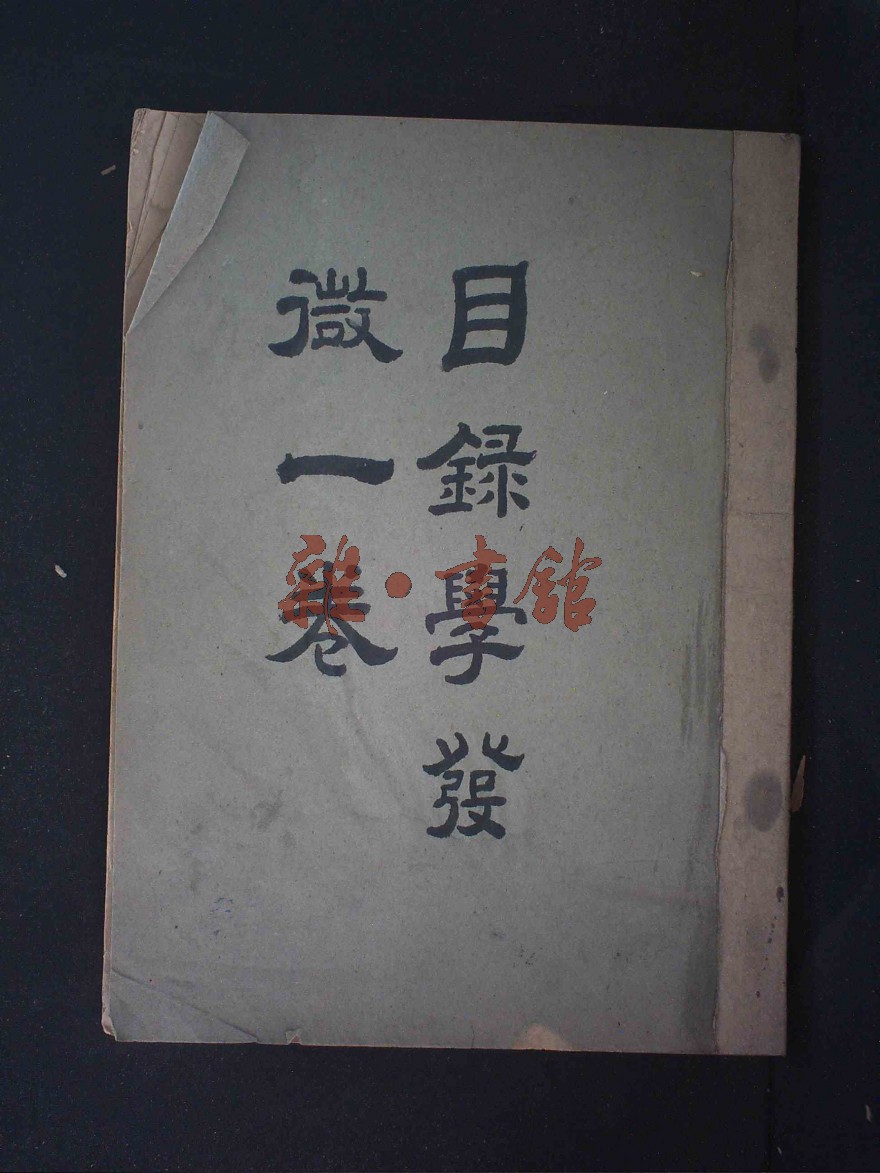 目錄學發
微一卷
雜·書館